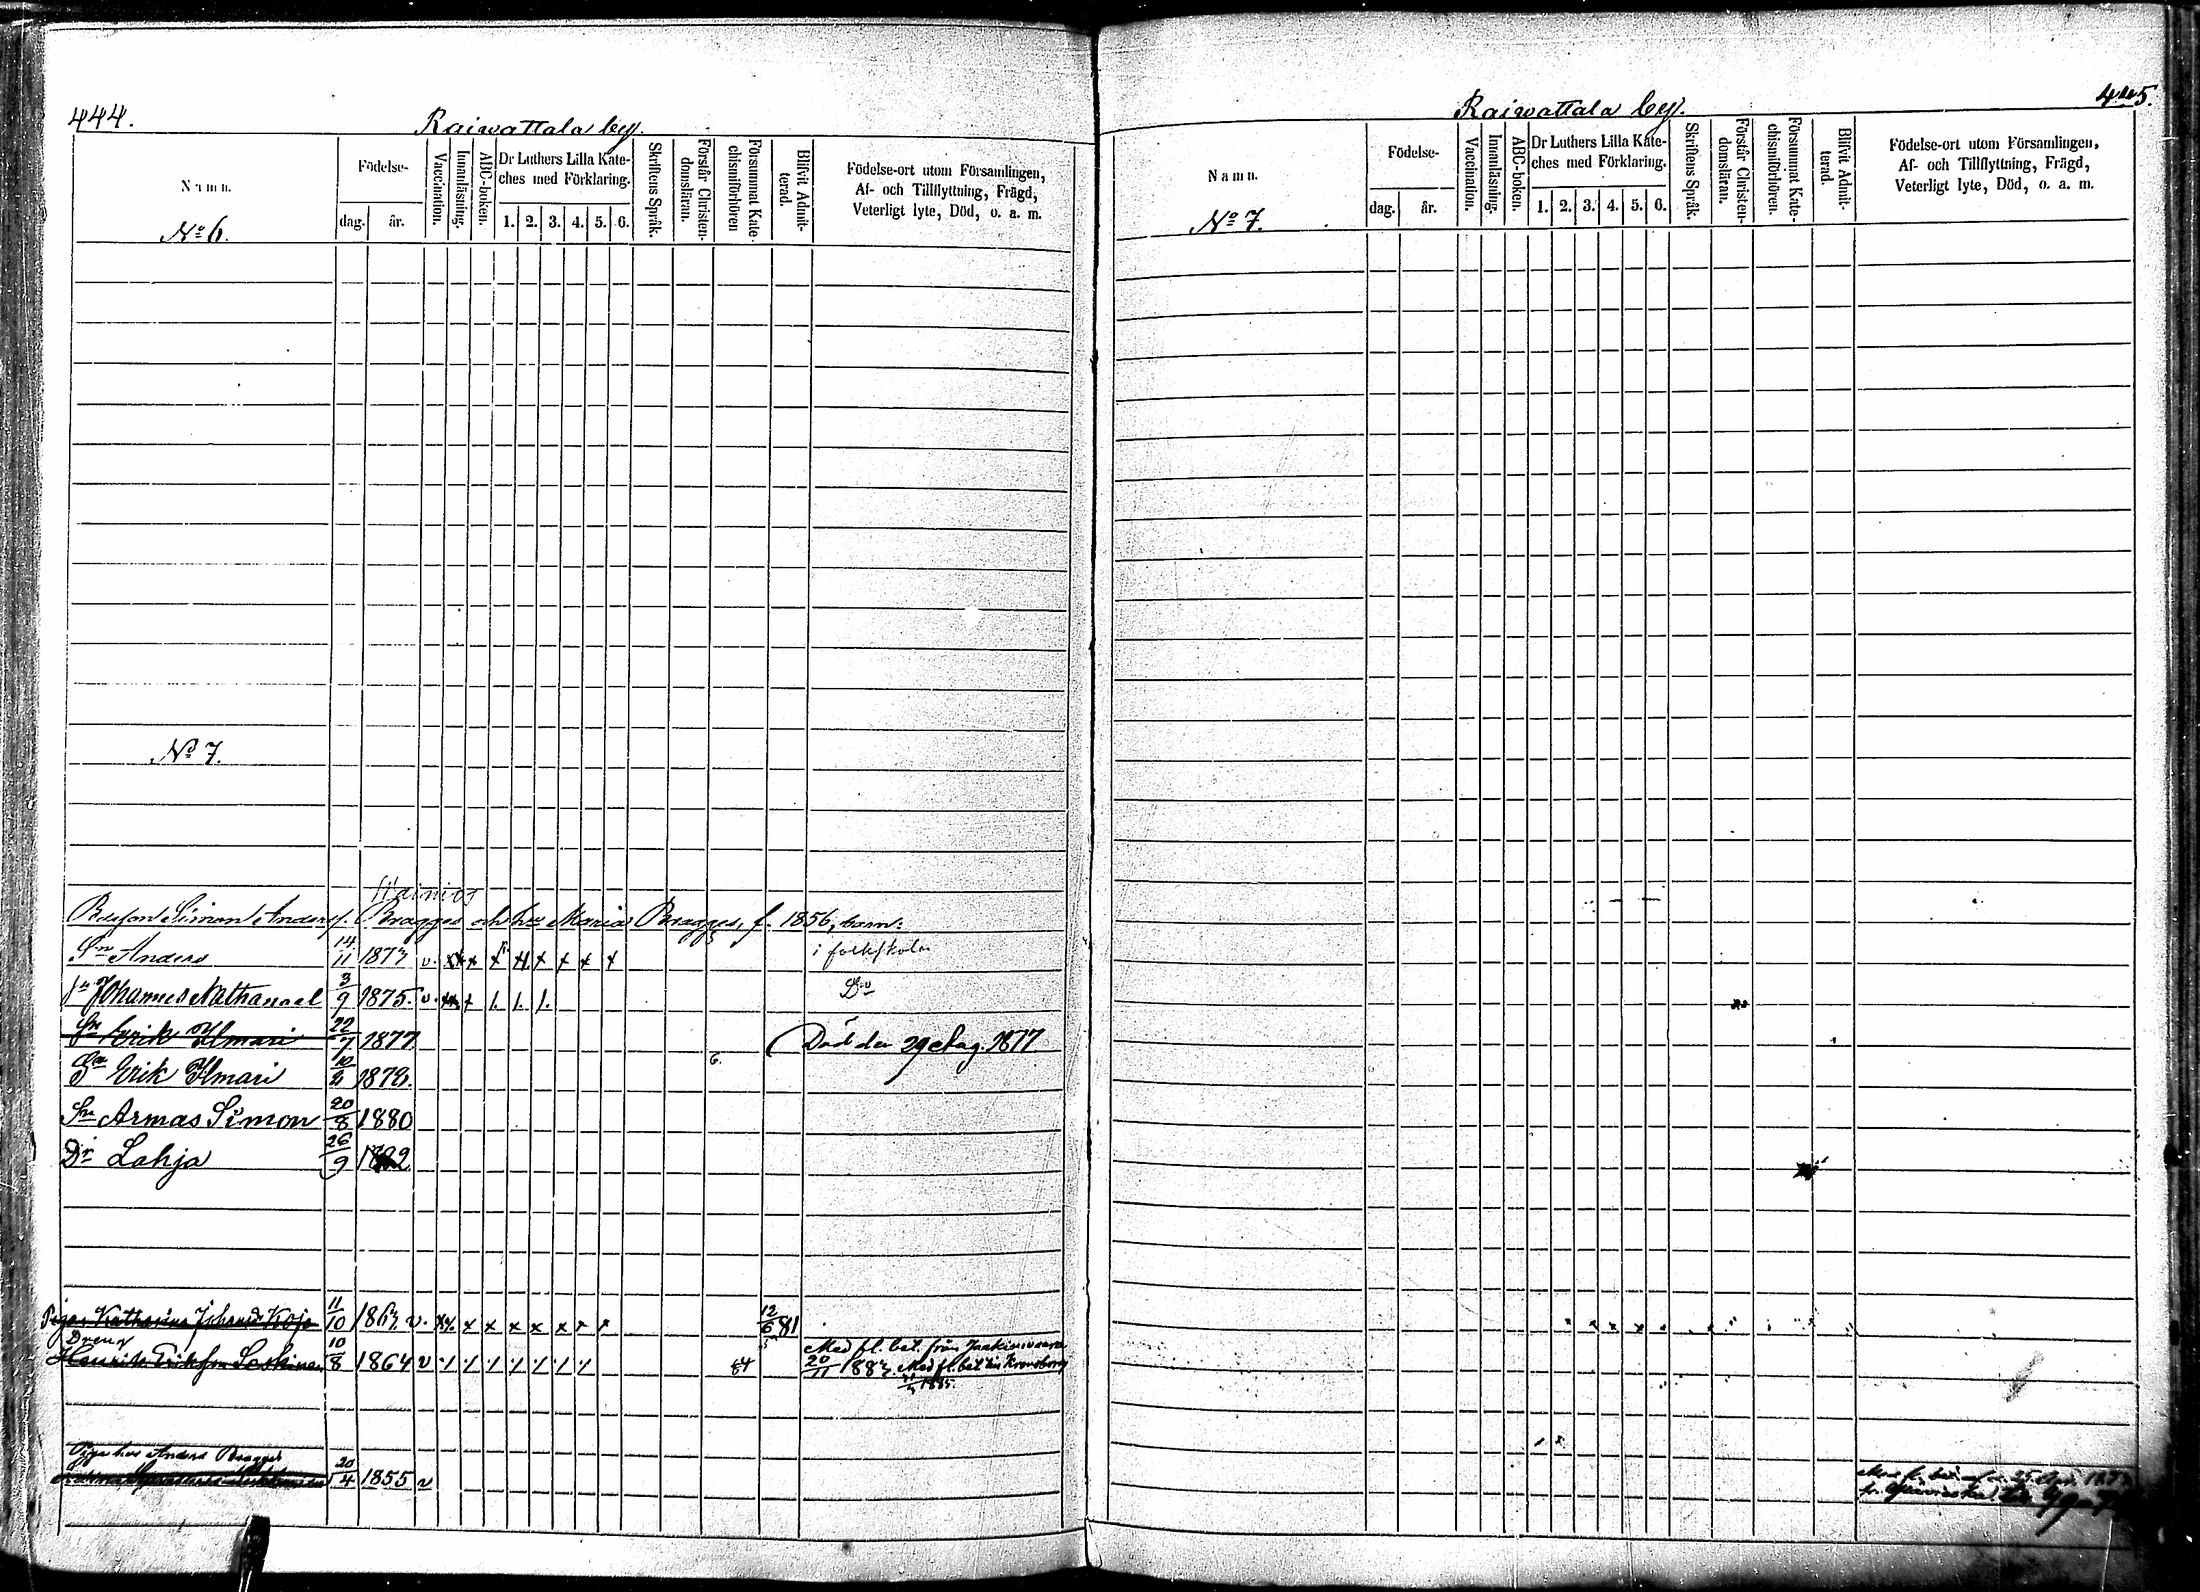 444.
Raiwattala by.
Namn.
Födelse-
dag.
år.
Vaccination.
Innanläsning.
ABC-boken.
Dr Luthers Lilla Kate-
ches med Förklaring.
1. 2. 3. 4. 5. 6.
Skriftens Språk.
Förstår Christen-
domsläran.
Försummat Kate-
chismiförhören
Blifvit Admit-
terad.
Födelse-ort utom Församlingen,
Af- och Tillflyttning, Frägd,
Veterligt lyte, Död, o. a. m.
No 6.
No 7.
Simon Anders Bragges och Maria Bragges, f. 1856, barn:
Sn Anders 14/11 1873 v. i folkskola
Sn Johannes Nathanael 3/9 1875. v. Do
Sn Erik Ilmari 22/7 1877 Död den 29 Aug. 1877
Sn Erik Ilmari 10/2 1879. 6.
Sn Armas Simon 20/8 1880
Dr Lahja 26/9 1882
Piga Katharina Koje 11/10 1863 v. 12/6 81
Dreng Med fl. bet. från Jaakimvaara
Henrik Eriksson 10/8 1864 v 84 20/11 1883. Med fl. bet. till Kronoborg
1885.
Piga hos Anders Bragges
20/4 1855 v
445.
Raiwattala by.
Namn.
Födelse-
dag.
år.
Vaccination.
Innanläsning.
ABC-boken.
Dr Luthers Lilla Kate-
ches med Förklaring.
1. 2. 3. 4. 5. 6.
Skriftens Språk.
Förstår Christen-
domsläran.
Försummat Kate-
chismiförhören.
Blifvit Admit-
terad.
Födelse-ort utom Församlingen,
Af- och Tillflyttning, Frägd,
Veterligt lyte, Död, o. a. m.
No 7.